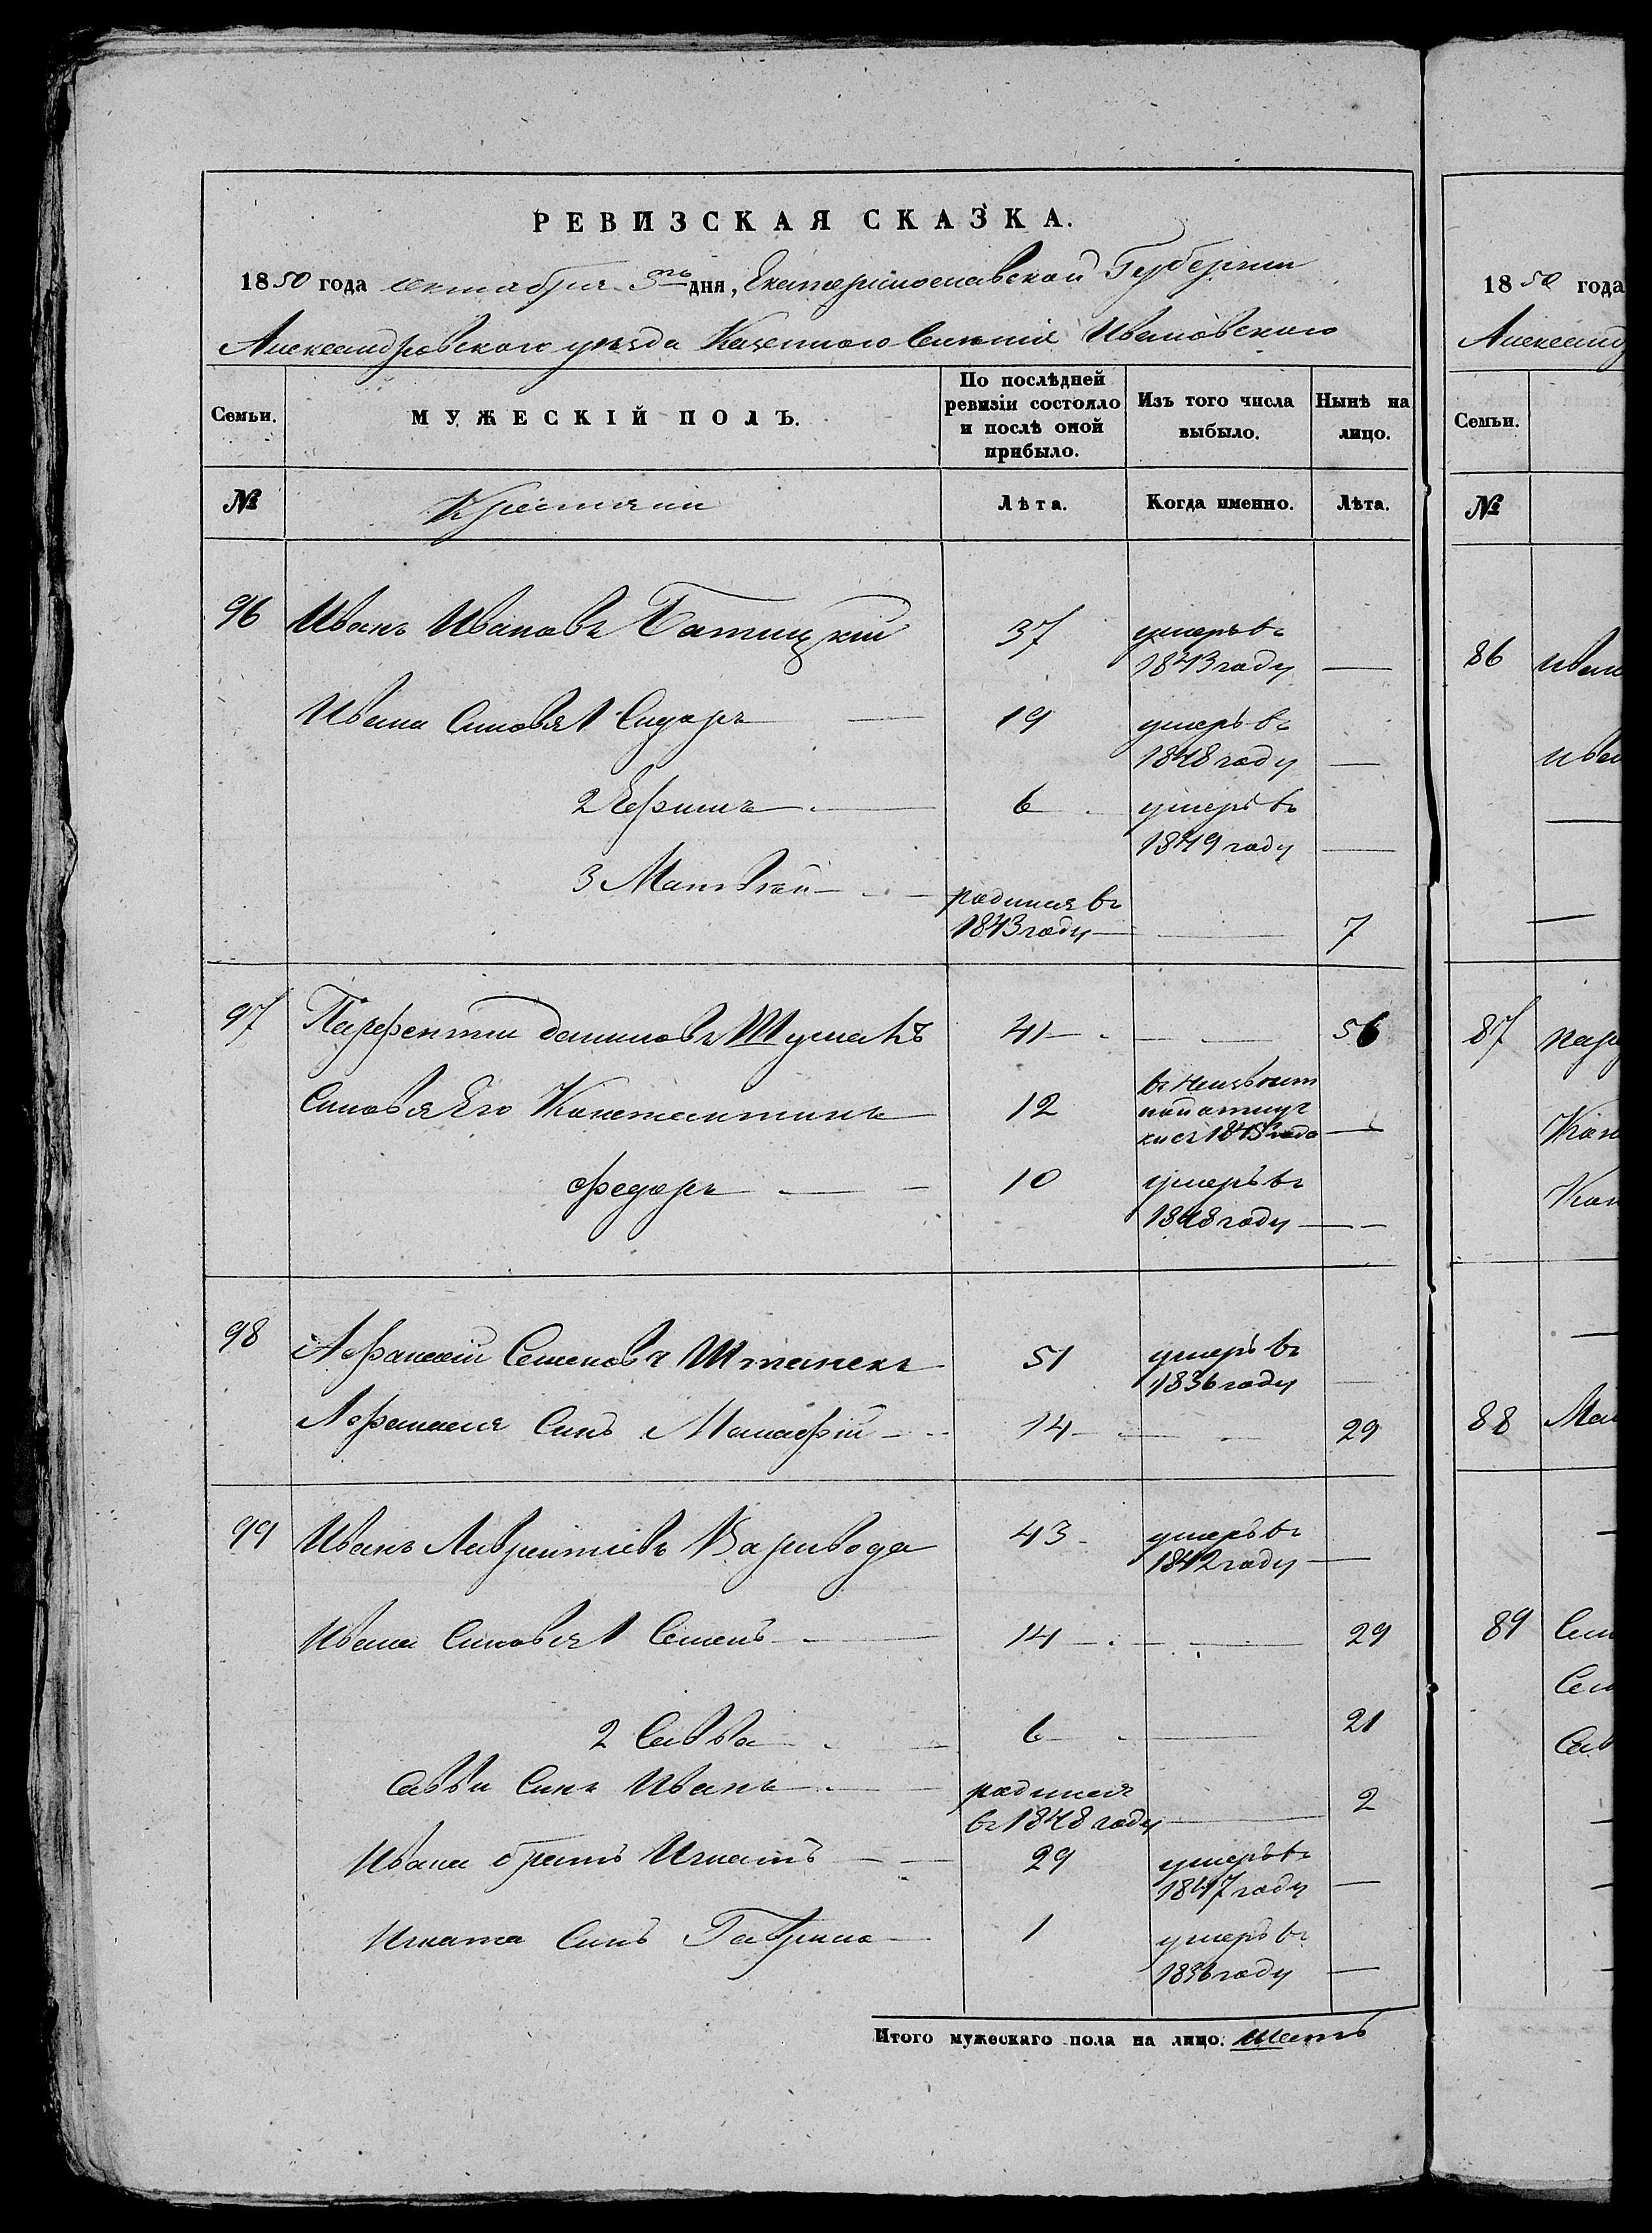 РЕВИЗСКАЯ СКАЗКА.
1850 года октября 5го дня, Екатеринославской Губернии
Александровского уезда Казенного Селения Ивановского
Семьи. МУЖЕСКІЙ ПОЛЪ. По послѣдней ревизіи состояло и послѣ оной прибыло. Изъ того числа выбыло. Нынѣ на лицо.
№ Крестяни Лѣта. Когда именно. Лѣта.
96 Иванъ Ивановъ Батицкій 37 умеръ въ 1843 году —
Ивана Синовя 1 Сидоръ — 19 умеръ въ 1848 году —
2 Ефимъ — 6 умеръ въ 1849 году —
3 Матвѣй — родился въ 1843 году — — 7
97 Парфентии Даниловъ Шумакъ 41 — — 56
Синовя Его Константинъ 12 в неизвѣстной отлучки съ 1845 года —
Федоръ — 10 умеръ въ 1848 году —
98 Афанасій Семеновъ Штанекъ 51 умеръ въ 1836 году —
Афанасія Синъ Макафій — 14 — — 29
99 Иванъ Лаврентіевъ Варивода 43 умеръ въ 1842 году —
Ивана Синовя 1 Семенъ — 14 — — 29
2 Савва — 6 — — 21
Савви Синъ Иванъ — родился въ 1848 году — 2
Ивана братъ Игнатъ — 29 умеръ въ 1847 году —
Игната Синъ Гаврило — 1 умеръ въ 1836 году —
Итого мужескаго пола на лицо. шесть
1850 года
Александ
Семьи.
№
86 Иван
Иван
87 Пар
Кон
Кон
88 Мак
89 Сем
Сем
Сав